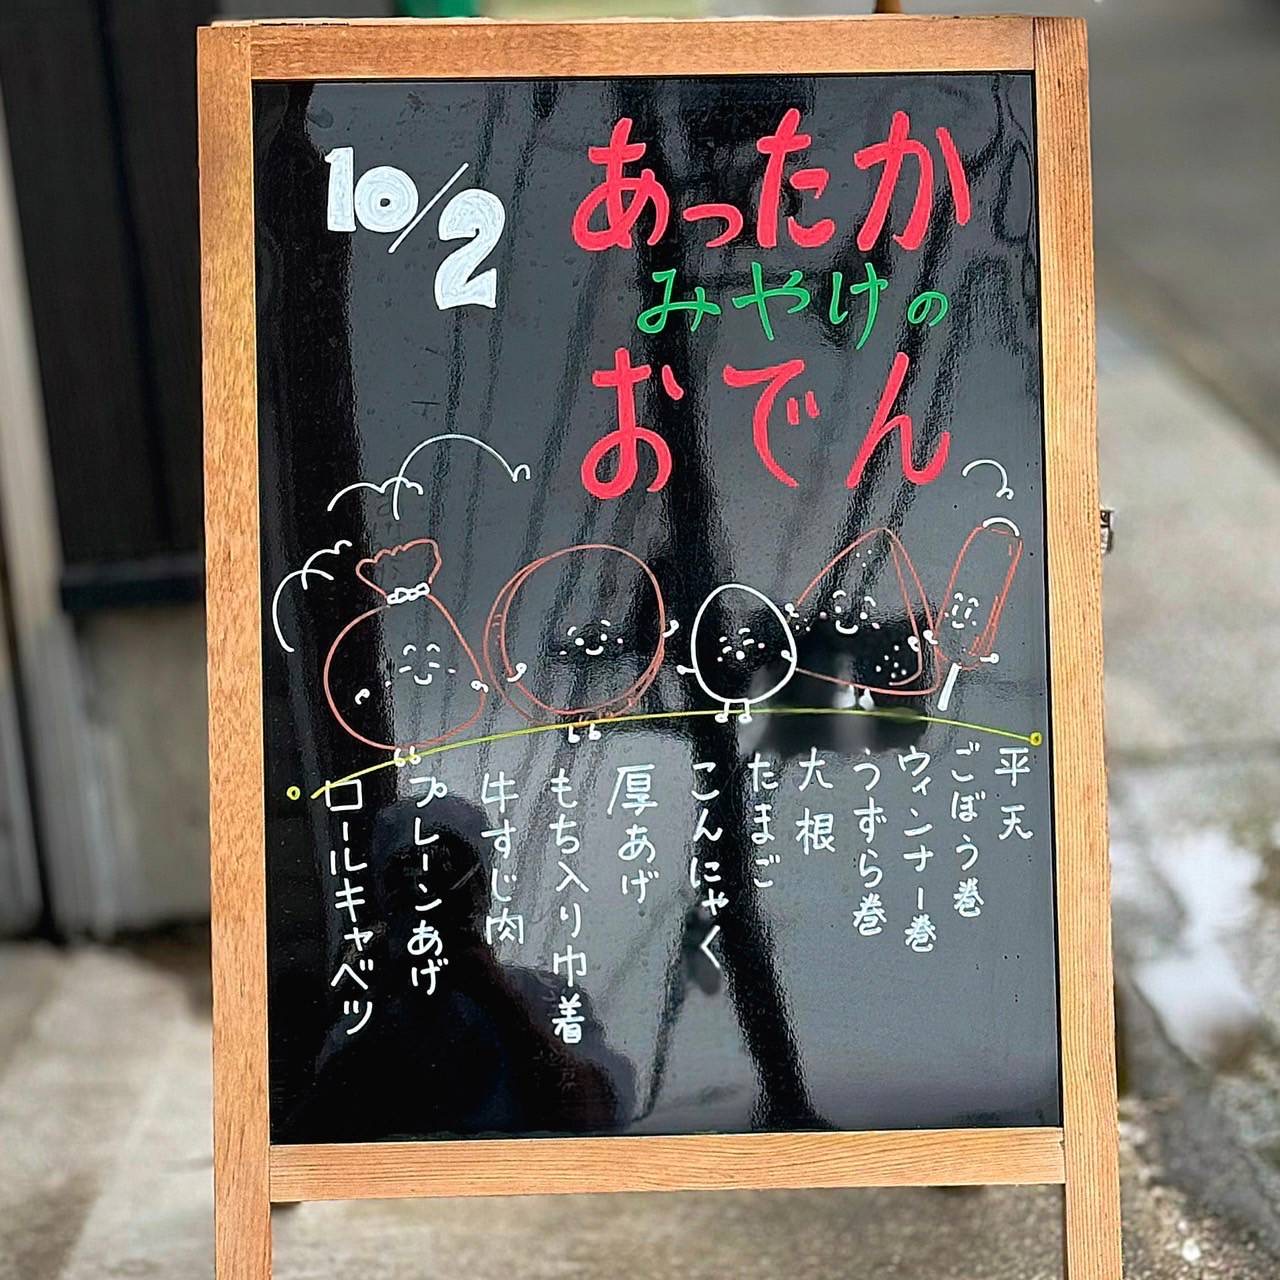 10/2
あったか
みやけの
おでん
平天
ごぼう巻
ウィンナー巻
うずら巻
大根
たまご
こんにゃく
厚あげ
もち入り巾着
牛すじ肉
プレーンあげ
ロールキャベツ